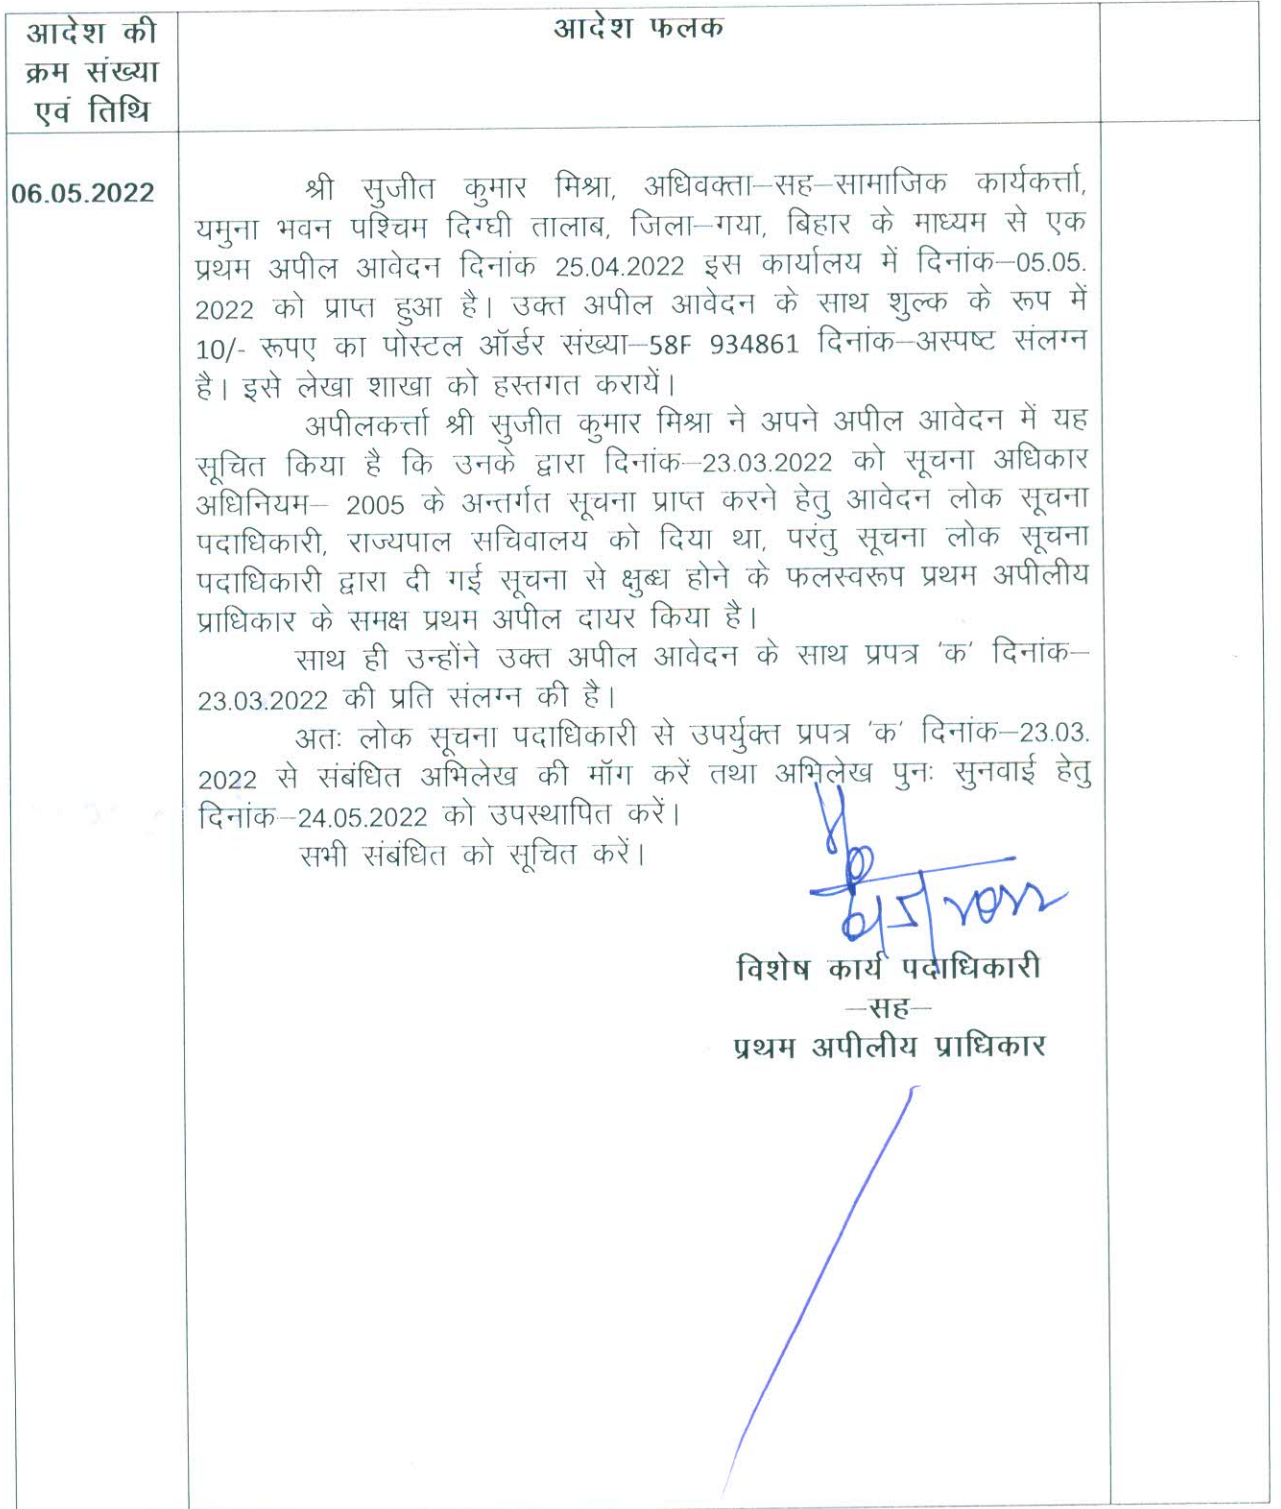 आदेश की
क्रम संख्या
एवं तिथि
आदेश फलक
06.05.2022
श्री सुजीत कुमार मिश्रा, अधिवक्ता–सह–सामाजिक कार्यकर्त्ता,
यमुना भवन पश्चिम दिग्घी तालाब, जिला–गया, बिहार के माध्यम से एक
प्रथम अपील आवेदन दिनांक 25.04.2022 इस कार्यालय में दिनांक–05.05.
2022 को प्राप्त हुआ है। उक्त अपील आवेदन के साथ शुल्क के रूप में
10/- रूपए का पोस्टल ऑर्डर संख्या–58F 934861 दिनांक–अस्पष्ट संलग्न
है। इसे लेखा शाखा को हस्तगत करायें।
अपीलकर्त्ता श्री सुजीत कुमार मिश्रा ने अपने अपील आवेदन में यह
सूचित किया है कि उनके द्वारा दिनांक–23.03.2022 को सूचना अधिकार
अधिनियम– 2005 के अन्तर्गत सूचना प्राप्त करने हेतु आवेदन लोक सूचना
पदाधिकारी, राज्यपाल सचिवालय को दिया था, परंतु सूचना लोक सूचना
पदाधिकारी द्वारा दी गई सूचना से क्षुब्ध होने के फलस्वरूप प्रथम अपीलीय
प्राधिकार के समक्ष प्रथम अपील दायर किया है।
साथ ही उन्होंने उक्त अपील आवेदन के साथ प्रपत्र 'क' दिनांक–
23.03.2022 की प्रति संलग्न की है।
अतः लोक सूचना पदाधिकारी से उपर्युक्त प्रपत्र 'क' दिनांक–23.03.
2022 से संबंधित अभिलेख की मॉग करें तथा अभिलेख पुनः सुनवाई हेतु
दिनांक–24.05.2022 को उपस्थापित करें।
सभी संबंधित को सूचित करें।
विशेष कार्य पदाधिकारी
–सह–
प्रथम अपीलीय प्राधिकार